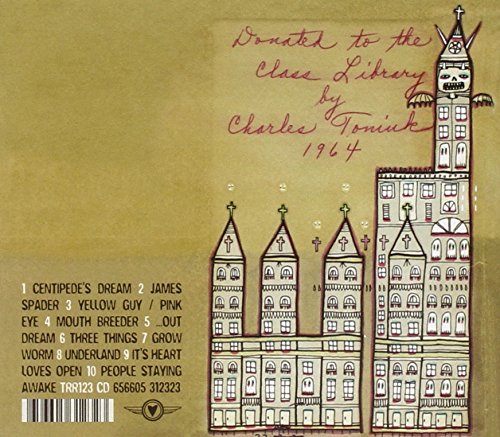 Donated to the
Class Library
by
Charles Toniuk
1964
1 CENTIPEDE'S DREAM 2 JAMES
SPADER 3 YELLOW GUY / PINK
EYE 4 MOUTH BREEDER 5 ...OUT
DREAM 6 THREE THINGS 7 GROW
WORM 8 UNDERLAND 9 IT'S HEART
LOVES OPEN 10 PEOPLE STAYING
AWAKE TRR123 CD 656605 312323